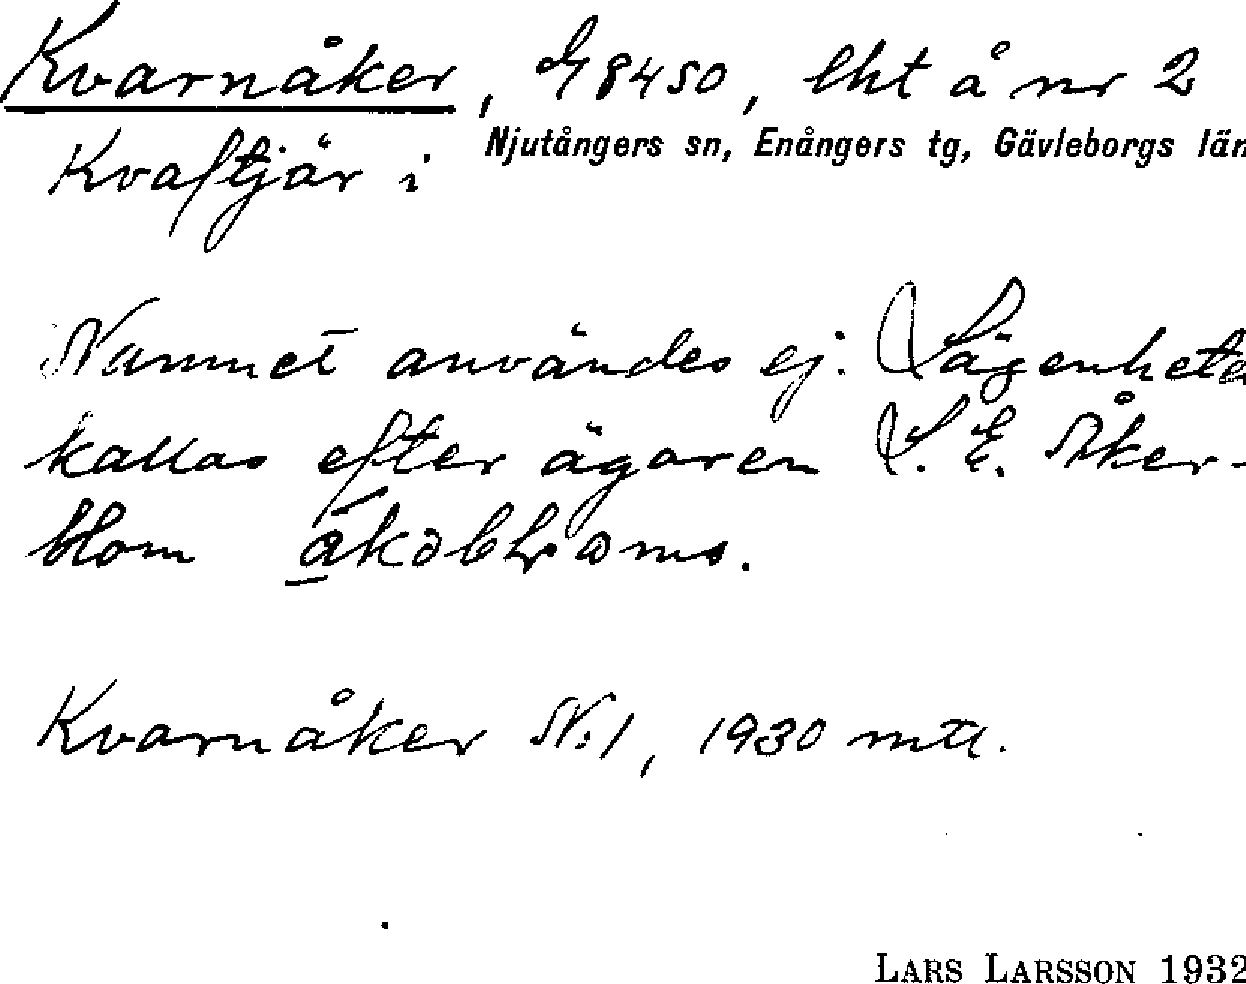 Kvarnåker, 98450, lht å nr 2
Kvaftjär i Njutångers sn, Enångers tg, Gävleborgs län
Namnet användes ej. Lägenheten
kallas efter ägaren L. E. Åker-
blom
Kvarnåker N:1, 1930 mtl.
LARS LARSSON 1932